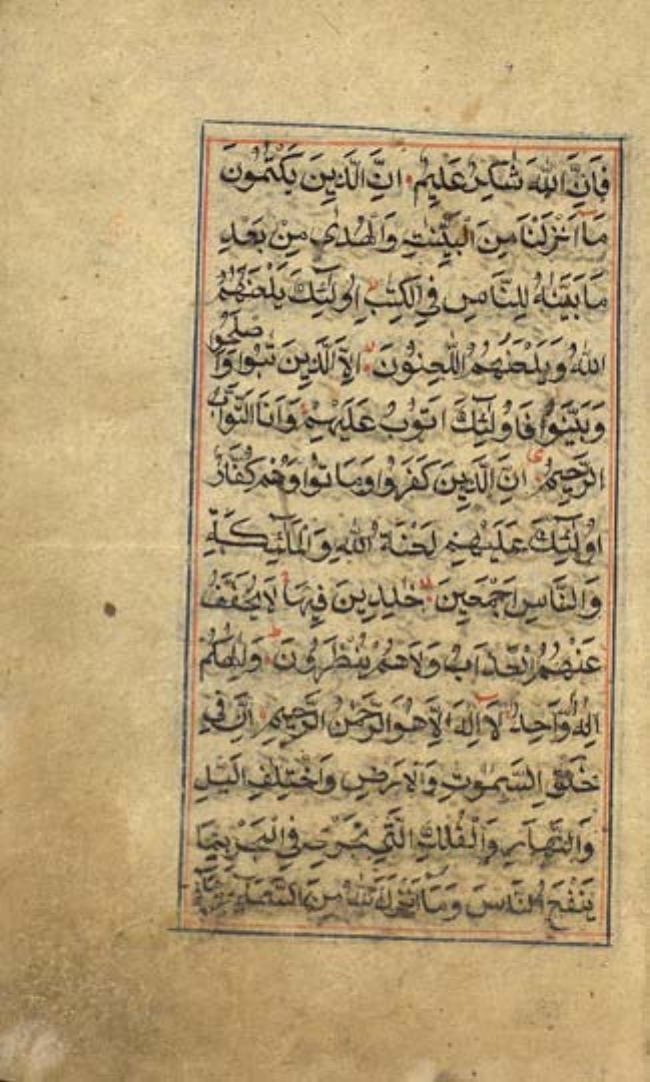 فَاِنَّ اللّٰهَ شَاكِرٌ عَلِيْمٌ اِنَّ الَّذِيْنَ يَكْتُمُوْنَ
مَآ اَنْزَلْنَا مِنَ الْبَيِّنٰتِ وَالْهُدٰى مِنْ بَعْدِ
مَا بَيَّنّٰهُ لِلنَّاسِ فِى الْكِتٰبِ اُولٰٓئِكَ يَلْعَنُهُمُ
اللّٰهُ وَيَلْعَنُهُمُ اللّٰعِنُوْنَ اِلَّا الَّذِيْنَ تَابُوْا وَاَصْلَحُوْا
وَبَيَّنُوْا فَاُولٰٓئِكَ اَتُوْبُ عَلَيْهِمْ وَاَنَا التَّوَّابُ
الرَّحِيْمُ اِنَّ الَّذِيْنَ كَفَرُوْا وَمَاتُوْا وَهُمْ كُفَّارٌ
اُولٰٓئِكَ عَلَيْهِمْ لَعْنَةُ اللّٰهِ وَالْمَلٰٓئِكَةِ
وَالنَّاسِ اَجْمَعِيْنَ خٰلِدِيْنَ فِيْهَا لَا يُخَفَّفُ
عَنْهُمُ الْعَذَابُ وَلَا هُمْ يُنْظَرُوْنَ وَاِلٰهُكُمْ
اِلٰهٌ وَّاحِدٌ لَآ اِلٰهَ اِلَّا هُوَ الرَّحْمٰنُ الرَّحِيْمُ اِنَّ فِيْ
خَلْقِ السَّمٰوٰتِ وَالْاَرْضِ وَاخْتِلَافِ الَّيْلِ
وَالنَّهَارِ وَالْفُلْكِ الَّتِيْ تَجْرِيْ فِى الْبَحْرِ بِمَا
يَنْفَعُ النَّاسَ وَمَآ اَنْزَلَ اللّٰهُ مِنَ السَّمَآءِ